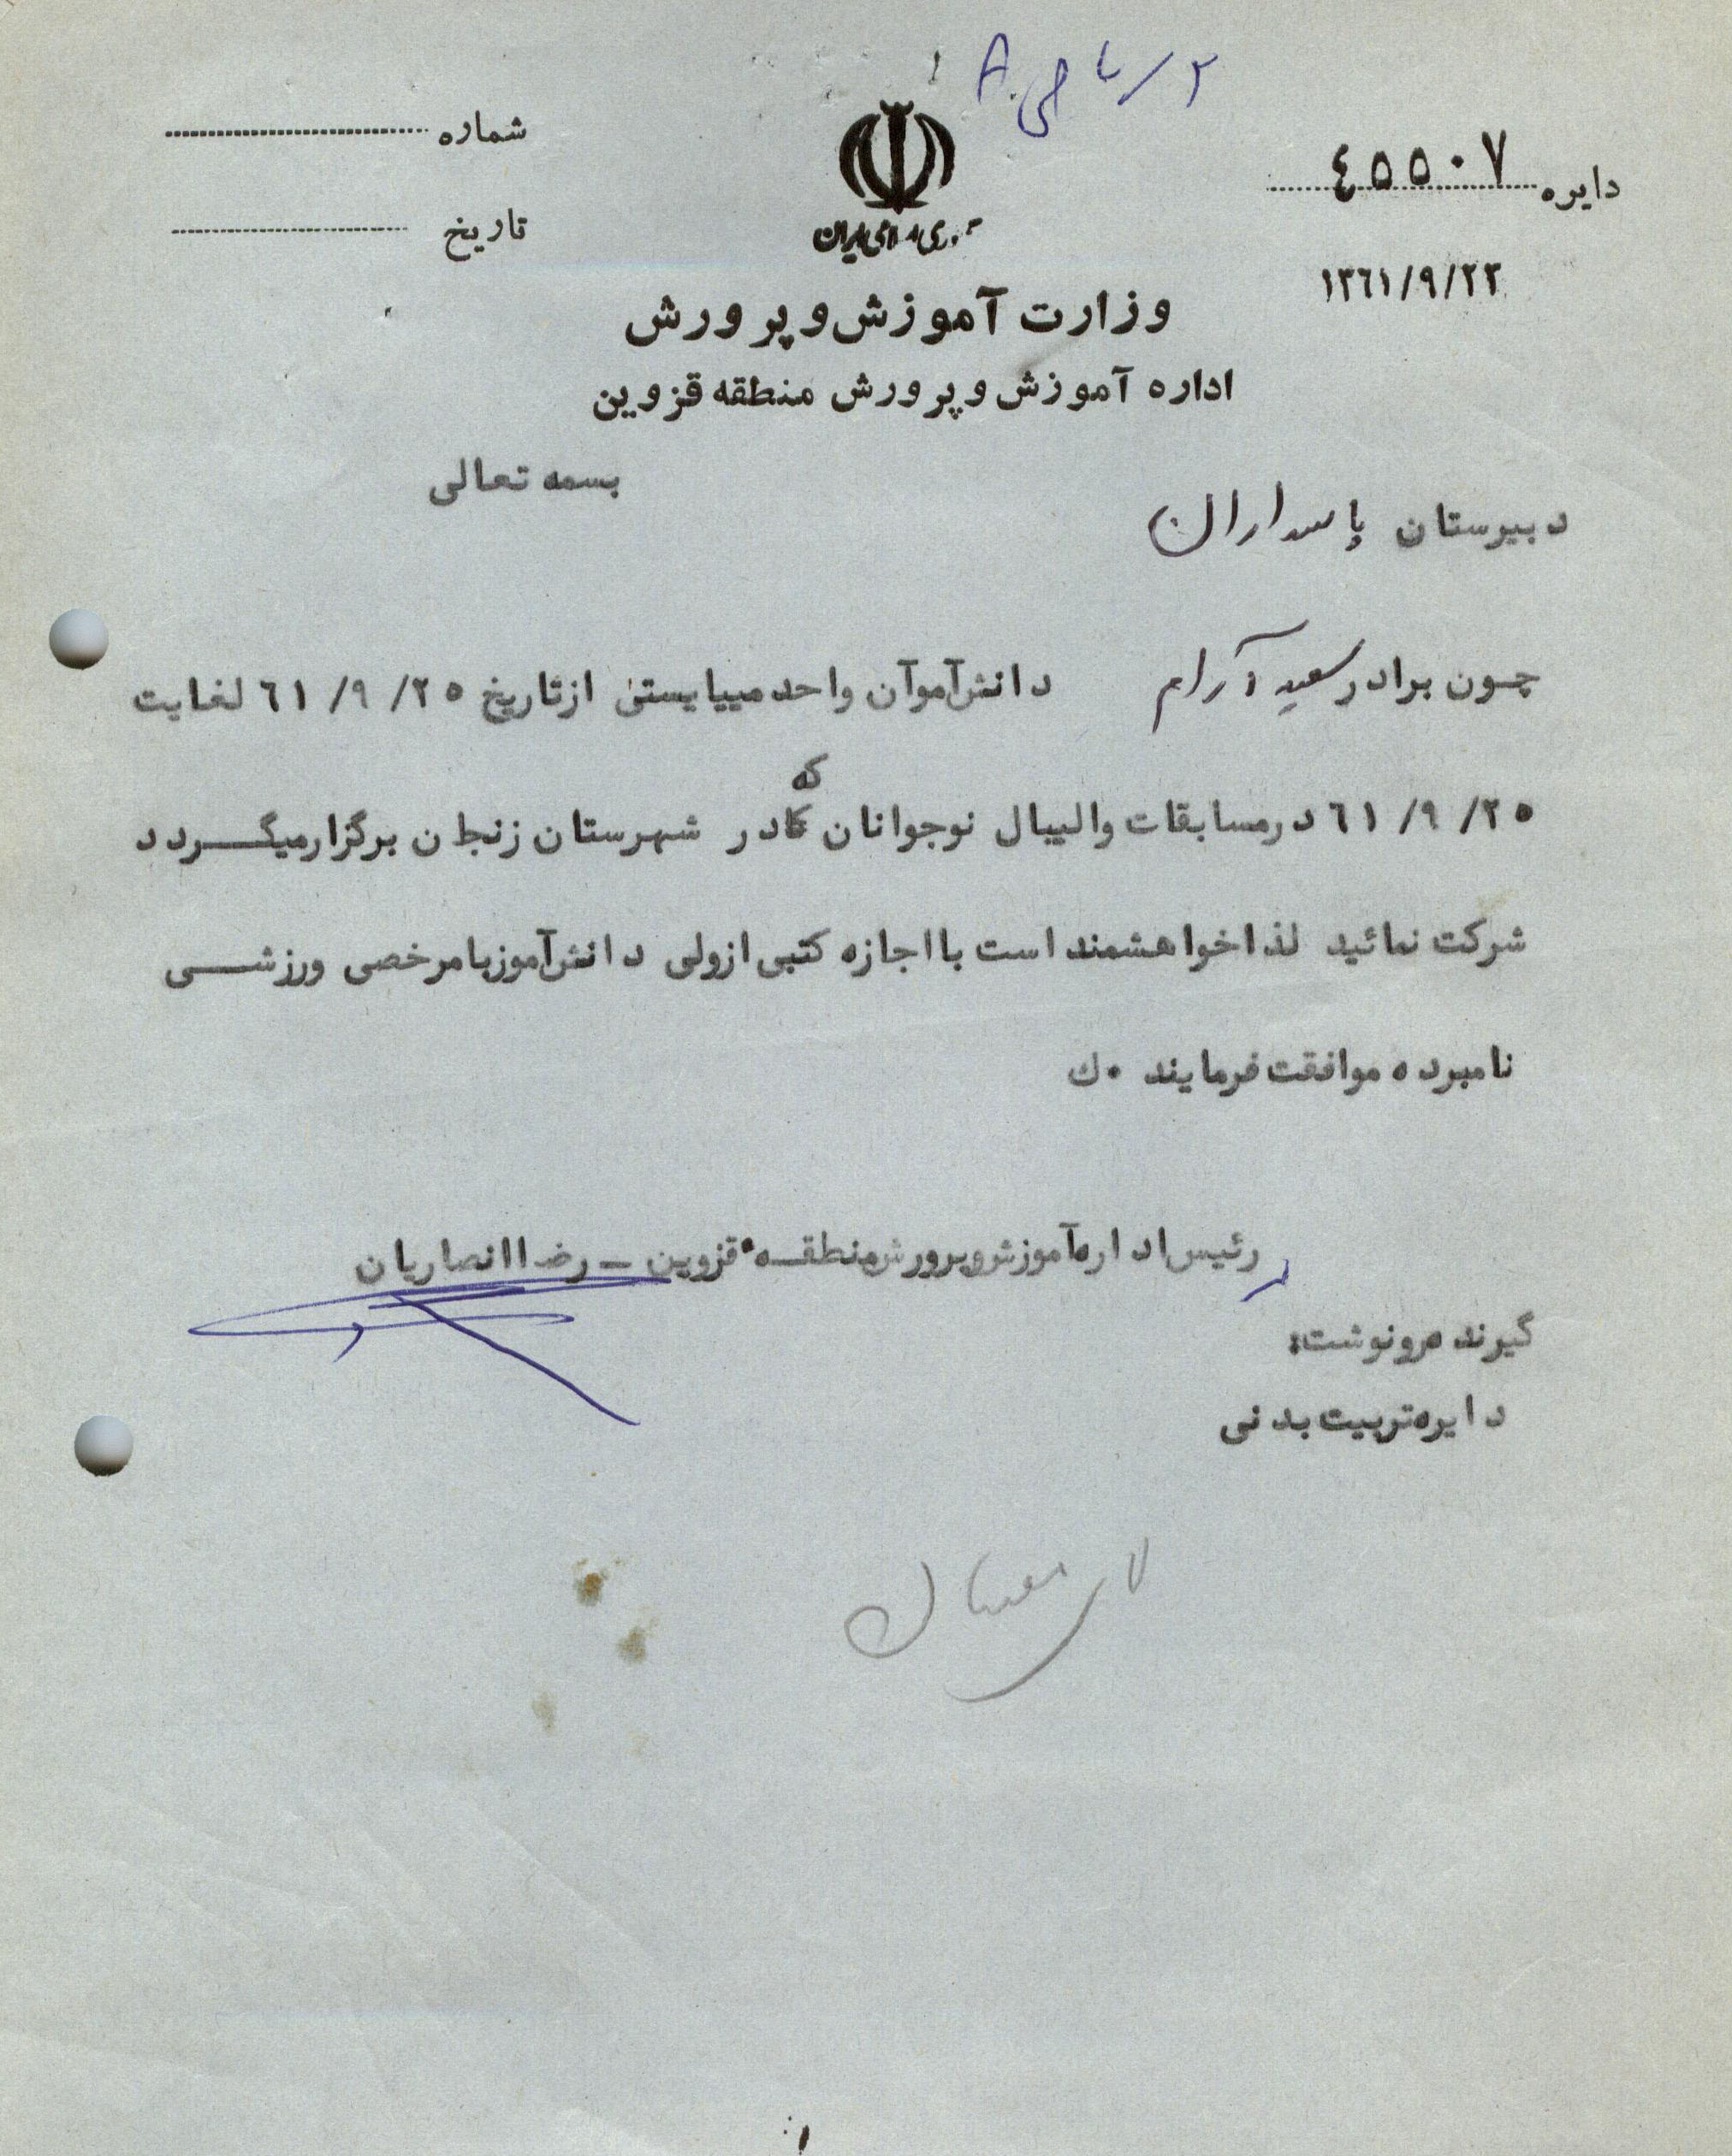 شماره
تاریخ
دایره ٤٥٥٠٧
١٣٦١/٩/٢٣
جمهوری اسلامی ایران
وزارت آموزش و پرورش
اداره آموزش و پرورش منطقه قزوین
بسمه تعالی
دبیرستان پاسداران
چون برادر سعید آرام دانش‌آموآن واحد میبایستی از تاریخ ٢٥ /٩ /٦١ لغایت
که
٢٥ /٩ /٦١ در مسابقات والیبال نوجوانان کادر شهرستان زنجان برگزار میگردد
شرکت نمائید لذا خواهشمند است با اجازه کتبی از ولی دانش‌آموز با مرخصی ورزشی
نامبرده موافقت فرمایند ٠ك
رئیس اداره آموزش و پرورش منطقه قزوین ـ رضا انصاریان
گیرنده رونوشت:
دایره تربیت بدنی